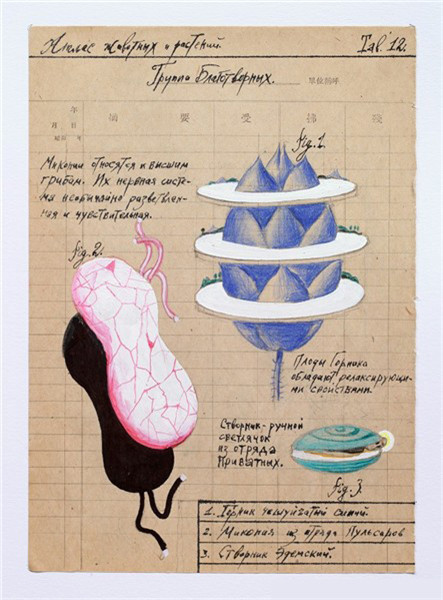 Атлас животных и растений. Tab. 12.
Группа Благотворных.
年
月 日 摘 要 受 拂 殘
Fig. 1.
Миконии относятся к высшим
грибам. Их нервная систе-
ма необычайно разветвлен-
ная и чувствительная.
Fig. 2.
Плоды Горника
обладают релаксирующи-
ми свойствами.
Створник-ручной
светлячок
из отряда
Приватных.
Fig. 3.
1. Горник чешуйчатый синий.
2. Микония из отряда Пульсаров
3. Створник Эдемский.